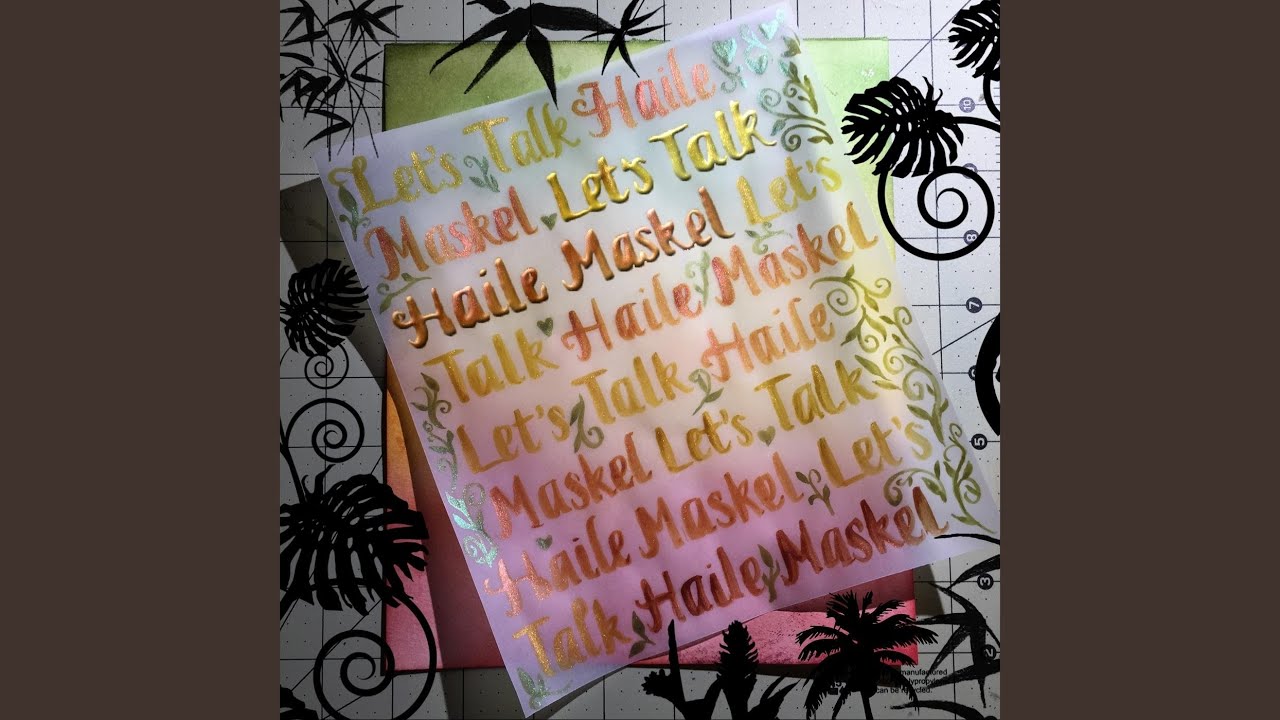 Let's Talk Haile
Maskel Let's Talk
Haile Maskel Let's
Talk Haile Maskel
Let's Talk Haile
Maskel Let's Talk
Haile Maskel Let's
Talk Haile Maskel
10
8
7
5
3
2
manufactured
can be recycled.